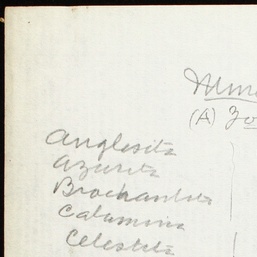 (A) Zo
Anglesite
Azurite
Brochantite
Calamine
Celestite